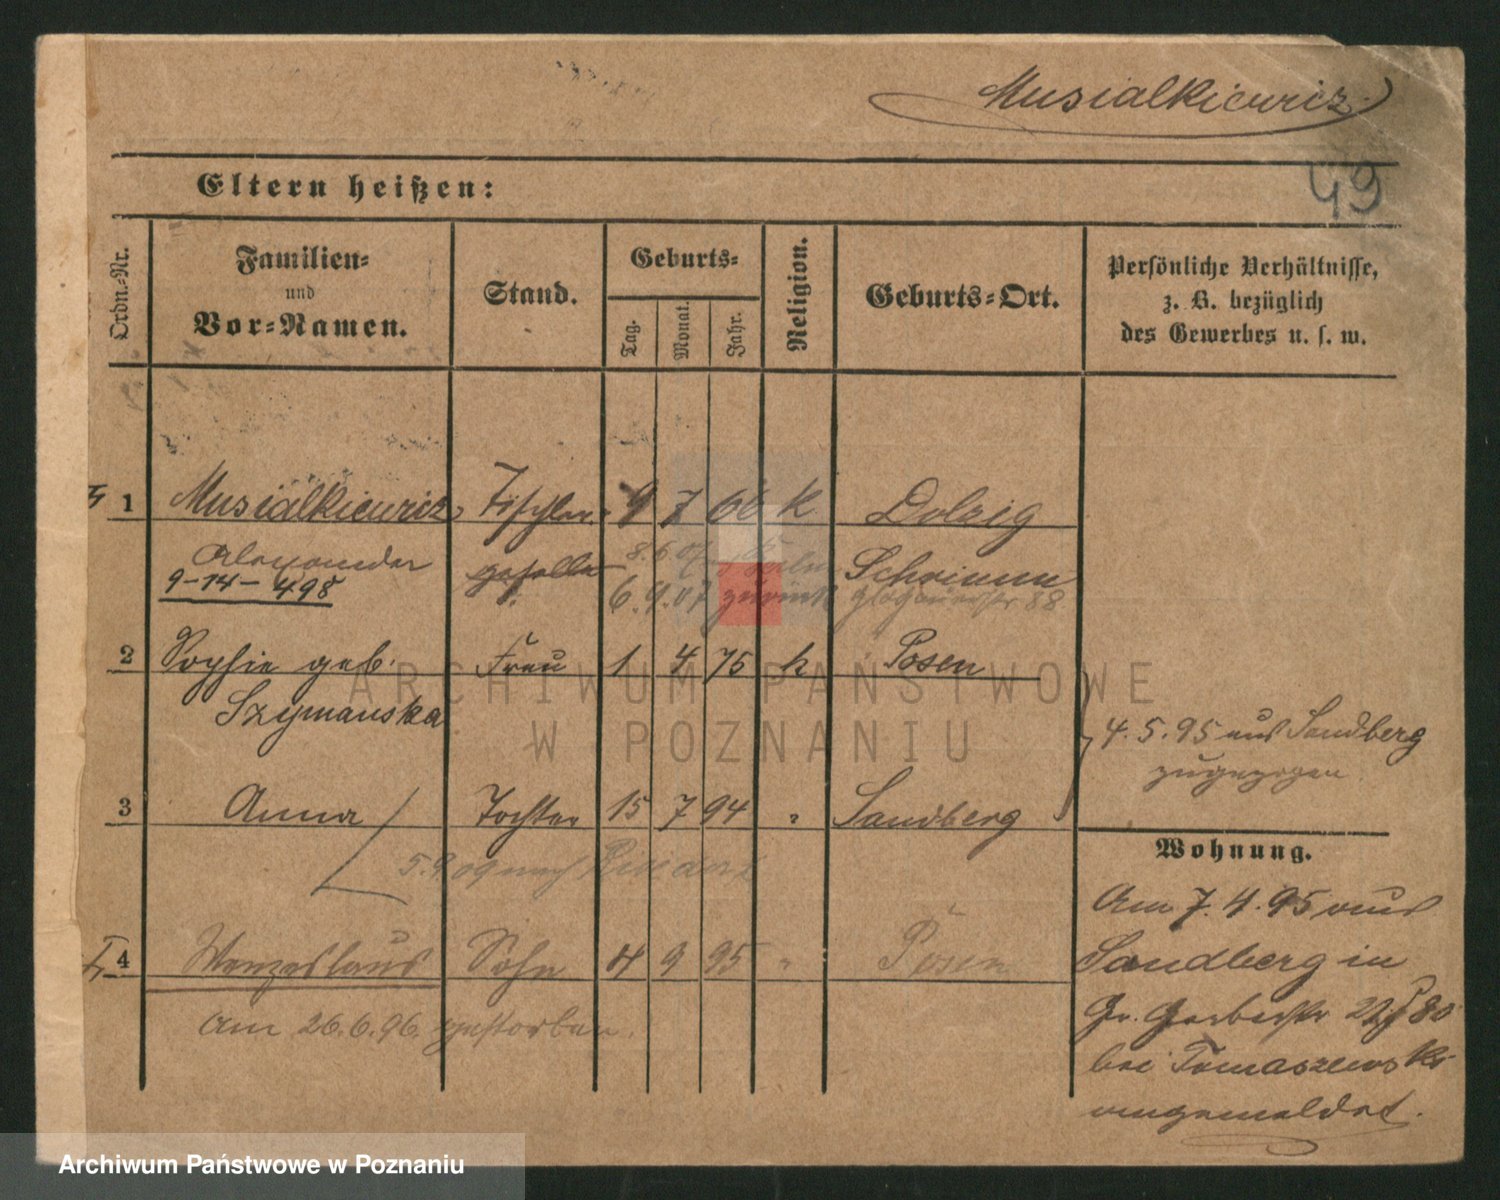 Musialkiewicz
49
Eltern heißen:
Ordn.-Nr.
Familien-
und
Vor-Namen.
Stand.
Geburts-
Tag.
Monat.
Jahr.
Religion.
Geburts-Ort.
Persönliche Verhältnisse,
z. B. bezüglich
des Gewerbes u. s. w.
1 Musialkiewicz Tischler- 9 7 66 k Dolzig
Alexander geselle Schrimm
9-14-498 6.9.07 zurück 88
2 Sophie geb. Frau 1 4 75 k Posen
Szymanska
4.5.95 aus Sandberg
zugezogen
3 Anna Tochter 15 7 94 " Sandberg
5.9.09 nach
Wohnung.
Am 7.4.95 aus
4 Wenzeslaus Sohn 4 9 95 " Posen
Sandberg in
Am 26.6.96 gestorben.
Gr. Gerberstr
bei Tomaszewski
angemeldet.
ARCHIWUM PAŃSTWOWE
W POZNANIU
Archiwum Państwowe w Poznaniu